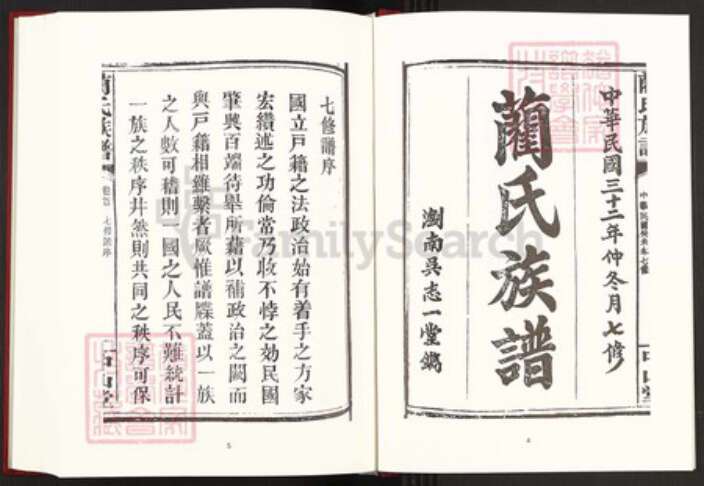 中華民國三十二年仲冬月七修
藺氏族譜
瀏南吳志一堂鐫
藺氏族譜
七修譜序
國立戶籍之法政治始有着手之方家
宏纘述之功倫常乃收不悖之効民國
肇興百端待舉所藉以補政治之闕而
與戶籍相維繫者厥惟譜牒蓋以一族
之人數可稽則一國之人民不難統計
一族之秩序井然則共同之秩序可保
藺氏族譜
七修譜序
FamilySearch
5
4